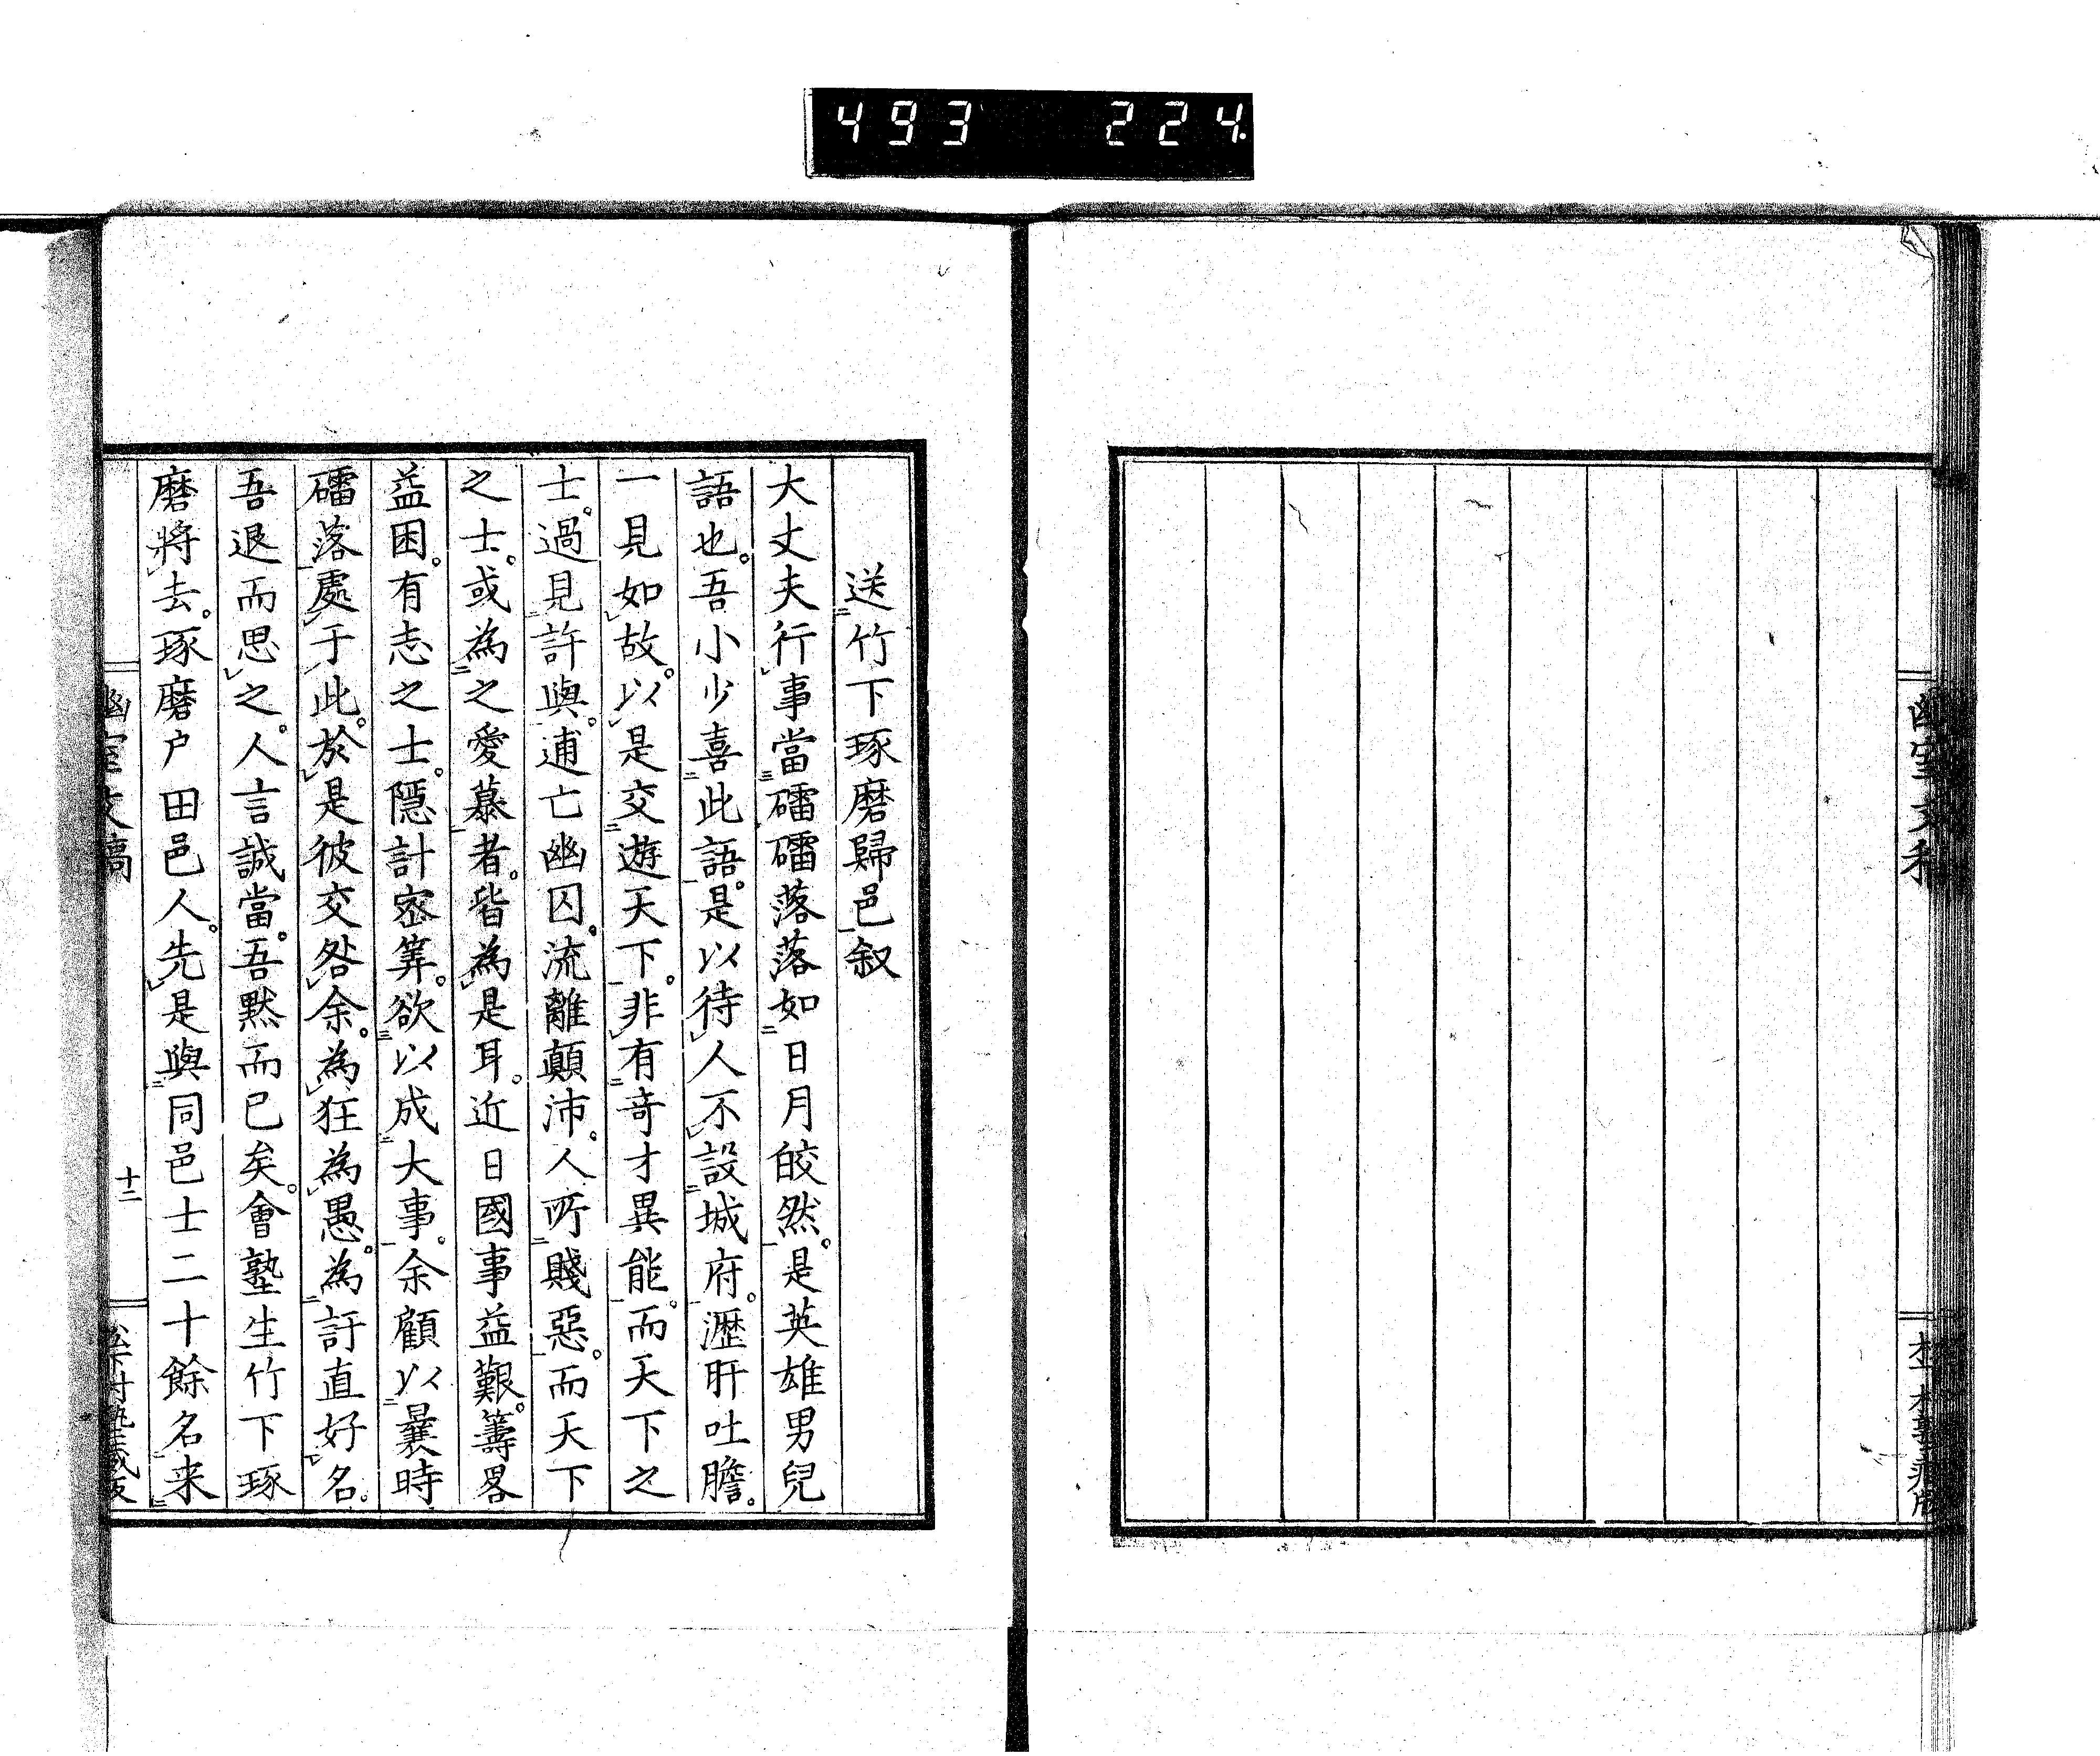 493 224
幽室文稿
送竹下琢磨歸邑叙
大丈夫行事當礌礌落落如日月皎然。是英雄男兒
語也。吾小少喜此語。是以待人不設城府。瀝肝吐膽。
一見如故。以是交遊天下。非有奇才異能。而天下之
士。過見許與。逋亡幽囚。流離顛沛。人所賤惡。而天下
之士。或為之愛慕者。皆為是耳。近日國事益艱。籌畧
益困。有志之士。隱計密筭。欲以成大事。余顧以曩時
礌落處于此。於是彼交咎余。為狂為愚。為訐直好名。
吾退而思之。人言誠當。吾黙而已矣。會塾生竹下琢
磨將去。琢磨戶田邑人。先是與同邑士二十餘名来
幽室文稿
十二